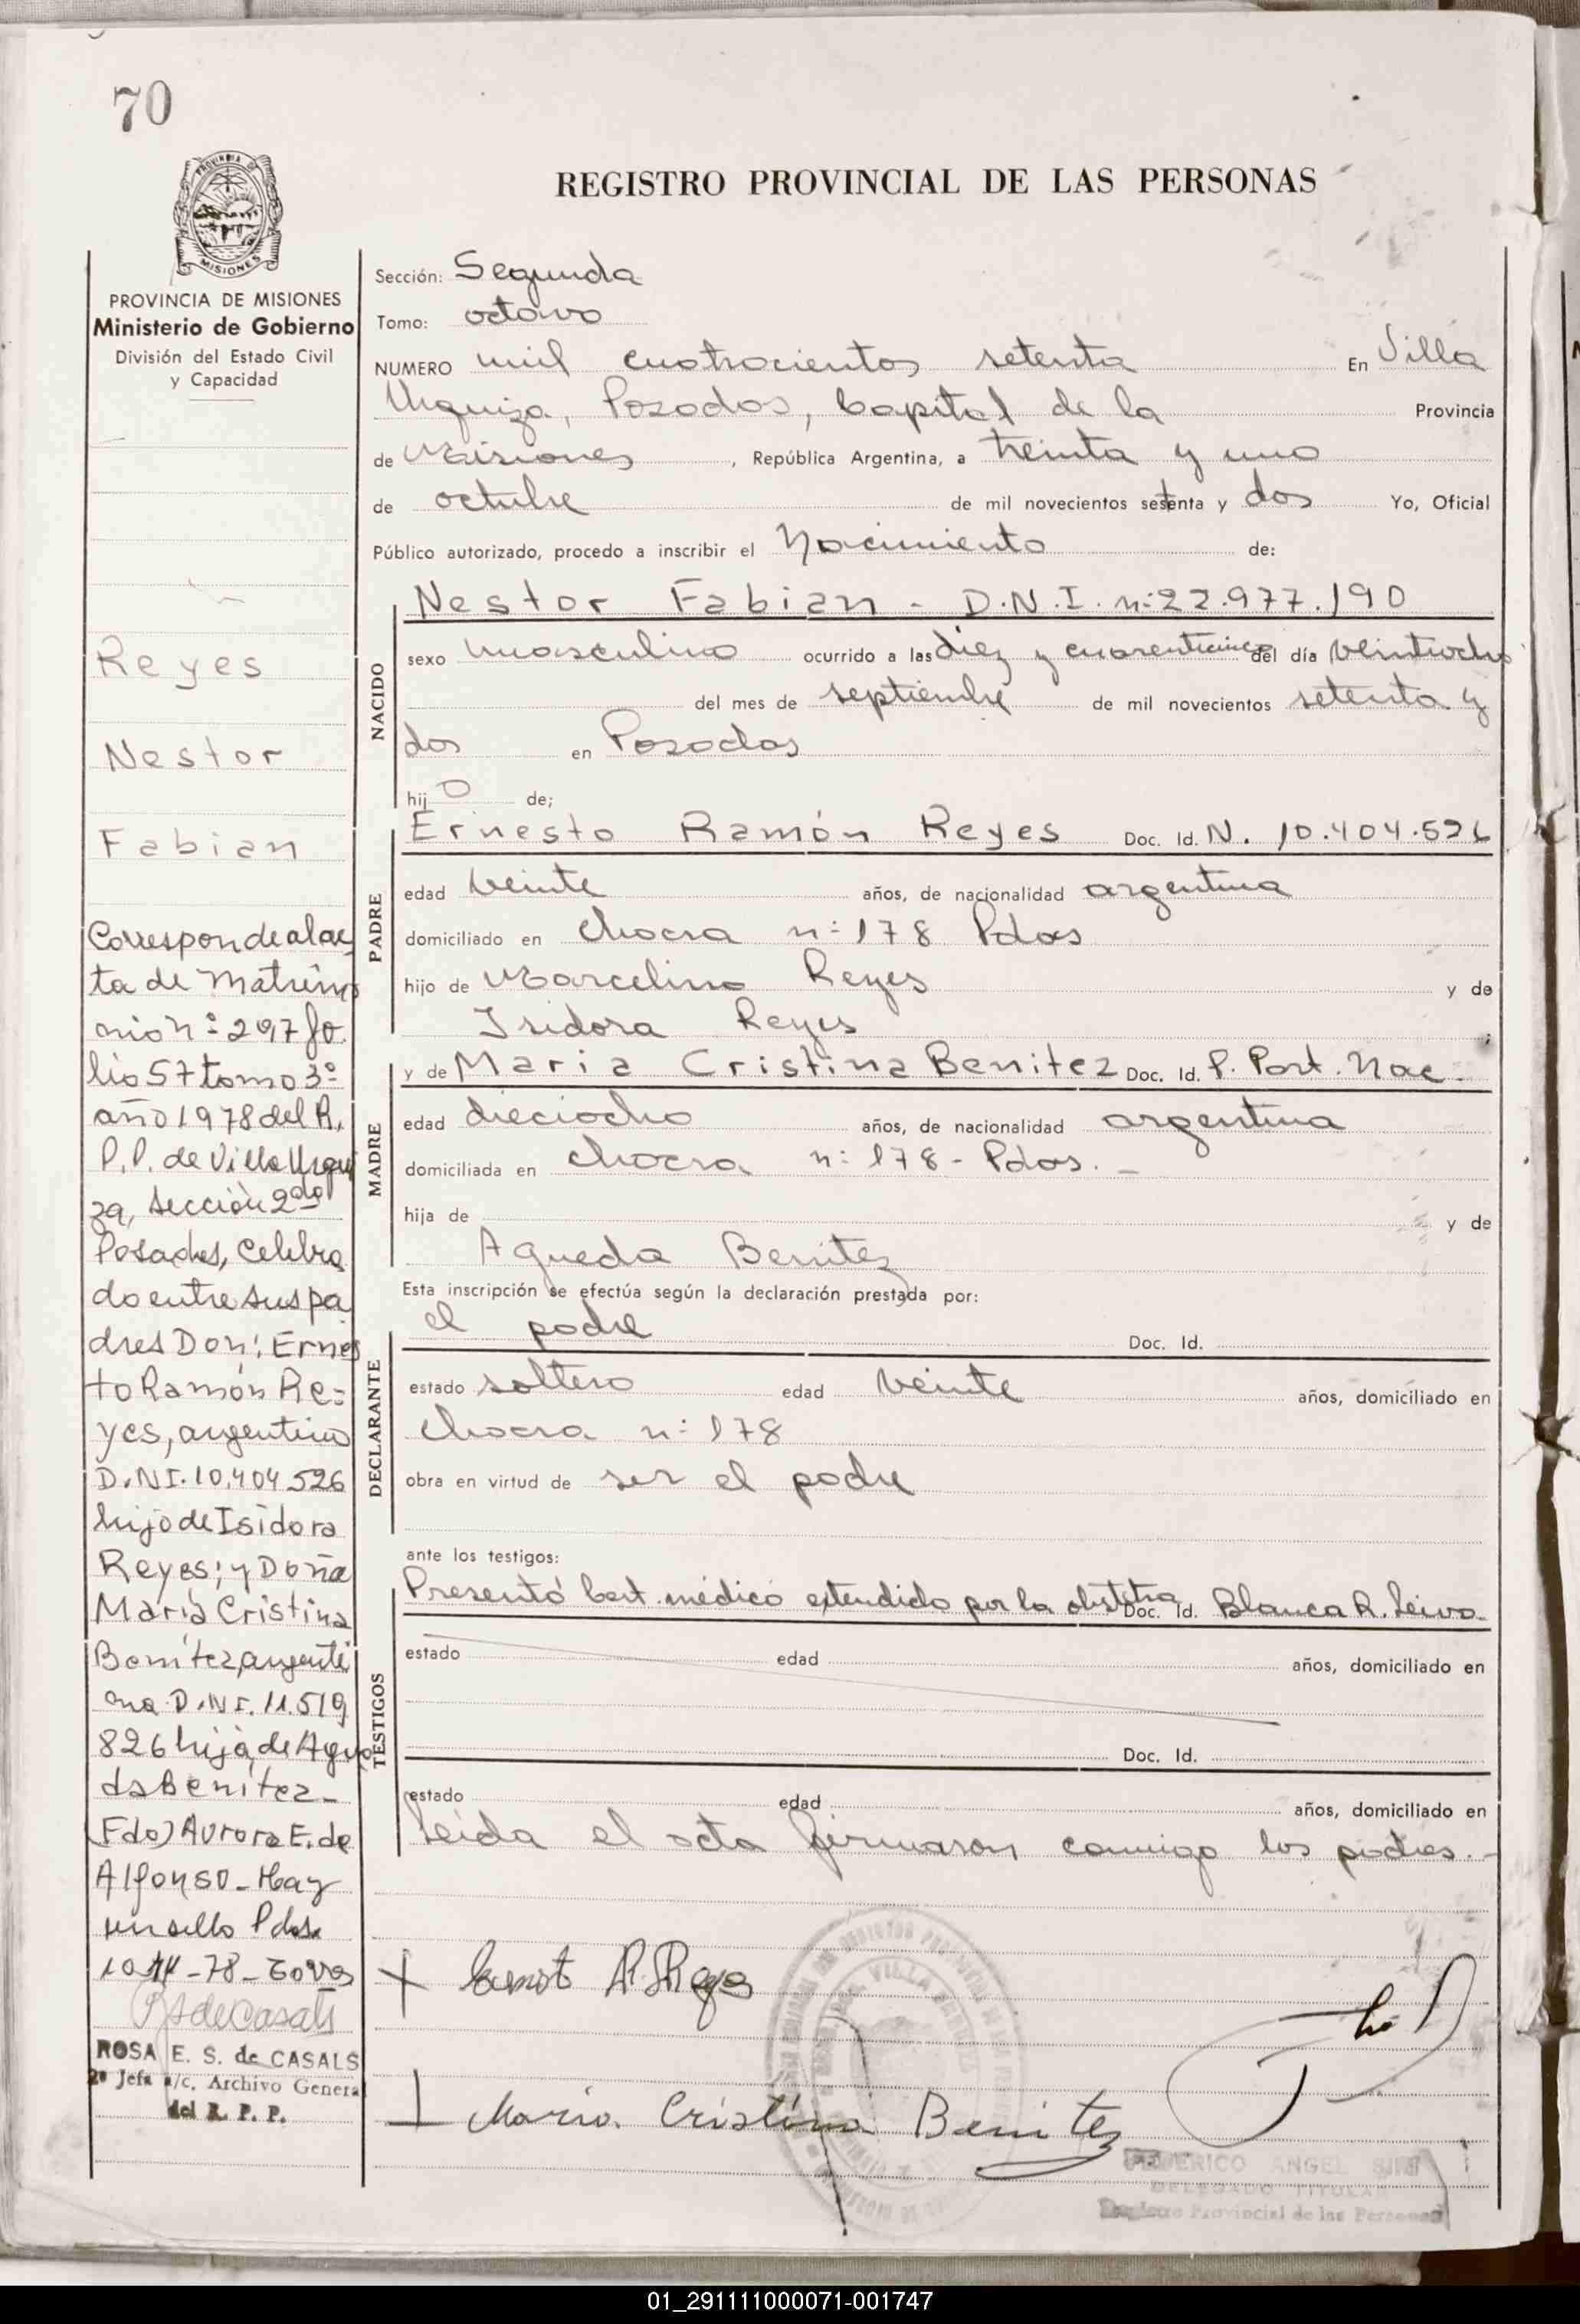 70
PROVINCIA DE MISIONES
REGISTRO PROVINCIAL DE LAS PERSONAS
PROVINCIA DE MISIONES
Ministerio de Gobierno
División del Estado Civil
y Capacidad
Reyes
Nestor
Fabian
Corresponde al ac
ta de Matrimo
nio nº 297 fo
lio 57 tomo 3º
año 1978 del R.
P.P. de Villa Urqui
za, Sección 2da
Posadas, Celebra
do entre sus pa
dres Don: Ernes
to Ramón Re=
yes, argentino
D.N.I. 10.404.526
hijo de Isidora
Reyes; y Doña
María Cristina
Benítez, argenti
na D.N.I. 11.519
826 hija de Ague
da Benítez_
(Fdo) Aurora E. de
Alfonso_Hay
un sello Pdas.
ROSA E. S. de CASALS
2ª Jefa a/c. Archivo General
del R. P. P.
Sección: Segunda
Tomo: octavo
NUMERO mil cuatrocientos setenta En Villa
Urquiza, Posadas, Capital de la Provincia
de Misiones, República Argentina, a treinta y uno
de octubre de mil novecientos setenta y dos Yo, Oficial
Público autorizado, procedo a inscribir el Nacimiento de:
NACIDO
Nestor Fabian - D.N.I. nº 22.977.190
sexo masculino ocurrido a las diez y cuarenticinco del día veintiocho
del mes de septiembre de mil novecientos setenta y
dos en Posadas
hijo de;
PADRE
Ernesto Ramón Reyes Doc. Id. N. 10.404.526
edad veinte años, de nacionalidad argentina
domiciliado en Chacra nº 178 Pdas
hijo de Marcelino Reyes y de
Isidora Reyes ;
MADRE
y de Maria Cristina Benitez Doc. Id. P. Part. Nac.
edad dieciocho años, de nacionalidad argentina
domiciliada en chacra nº 178 - Pdas. -
hija de y de
Agueda Benitez
Esta inscripción se efectúa según la declaración prestada por:
DECLARANTE
el padre Doc. Id.
estado soltero edad veinte años, domiciliado en
Chacra nº 178
obra en virtud de ser el padre
ante los testigos:
TESTIGOS
Presentó Cert. médico extendido por la obstetra Doc. Id. Blanca R. Leiva.
estado edad años, domiciliado en
Doc. Id.
estado edad años, domiciliado en
Leida el acta firmaron conmigo los padres.-
+ Ernesto R. Reyes
+ Maria Cristina Benitez
FEDERICO ANGEL
DELEGADO TITULAR
Registro Provincial de las Personas
01_291111000071-001747